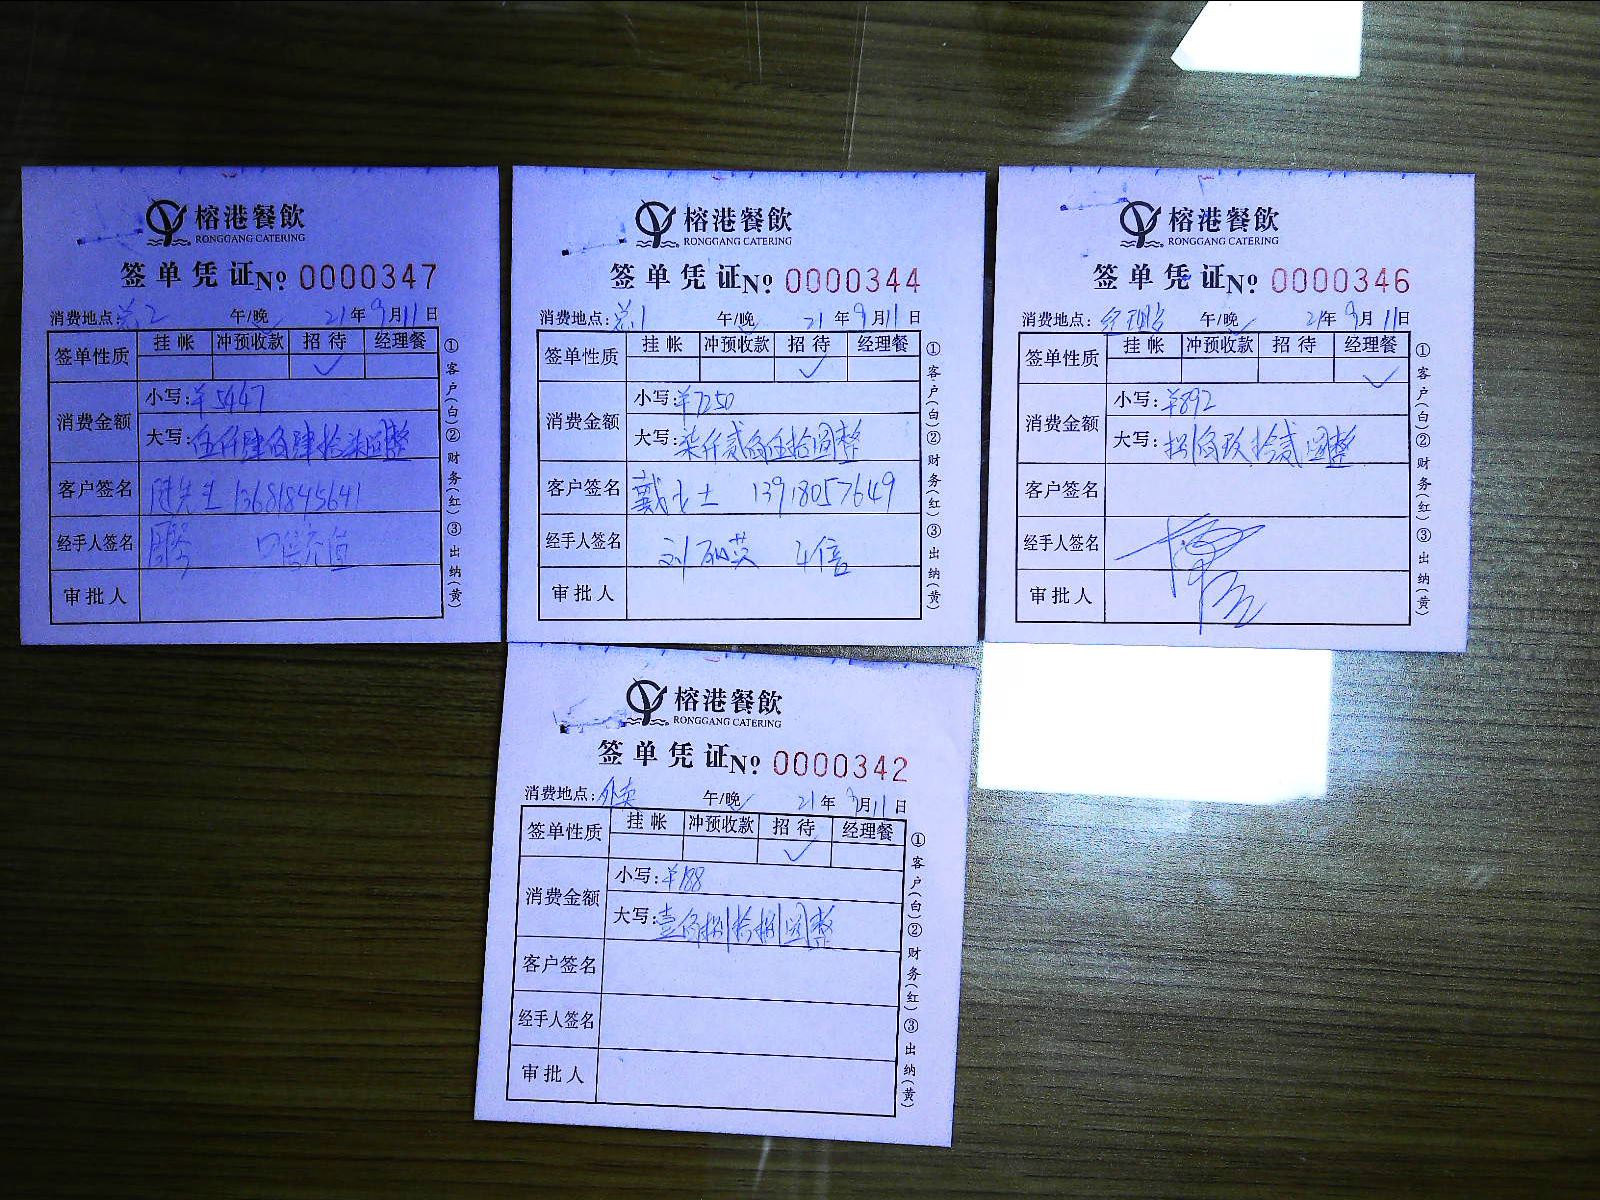 榕港餐飲
RONGGANG CATERING
签单凭证No 0000347
消费地点:总2 午/晚 21年9月11日
签单性质 挂帐 冲预收款 招待 经理餐
✓
消费金额 小写:¥5447
大写:伍仟肆佰肆拾柒圆整
客户签名 陆先生 13681845641
经手人签名
审批人
①客户(白)②财务(红)③出纳(黄)
榕港餐飲
RONGGANG CATERING
签单凭证No 0000344
消费地点:总1 午/晚 21年9月11日
签单性质 挂帐 冲预收款 招待 经理餐
✓
消费金额 小写:¥7250
大写:柒仟贰佰伍拾圆整
客户签名 戴女士 13918057649
经手人签名 刘丽英 4倍
审批人
①客户(白)②财务(红)③出纳(黄)
榕港餐飲
RONGGANG CATERING
签单凭证No 0000346
消费地点: 午/晚 21年9月11日
签单性质 挂帐 冲预收款 招待 经理餐
✓
消费金额 小写:¥892
大写:捌佰玖拾贰圆整
客户签名
经手人签名
审批人
①客户(白)②财务(红)③出纳(黄)
榕港餐飲
RONGGANG CATERING
签单凭证No 0000342
消费地点:外卖 午/晚 21年9月11日
签单性质 挂帐 冲预收款 招待 经理餐
✓
消费金额 小写:¥188
大写:壹佰捌拾捌圆整
客户签名
经手人签名
审批人
①客户(白)②财务(红)③出纳(黄)